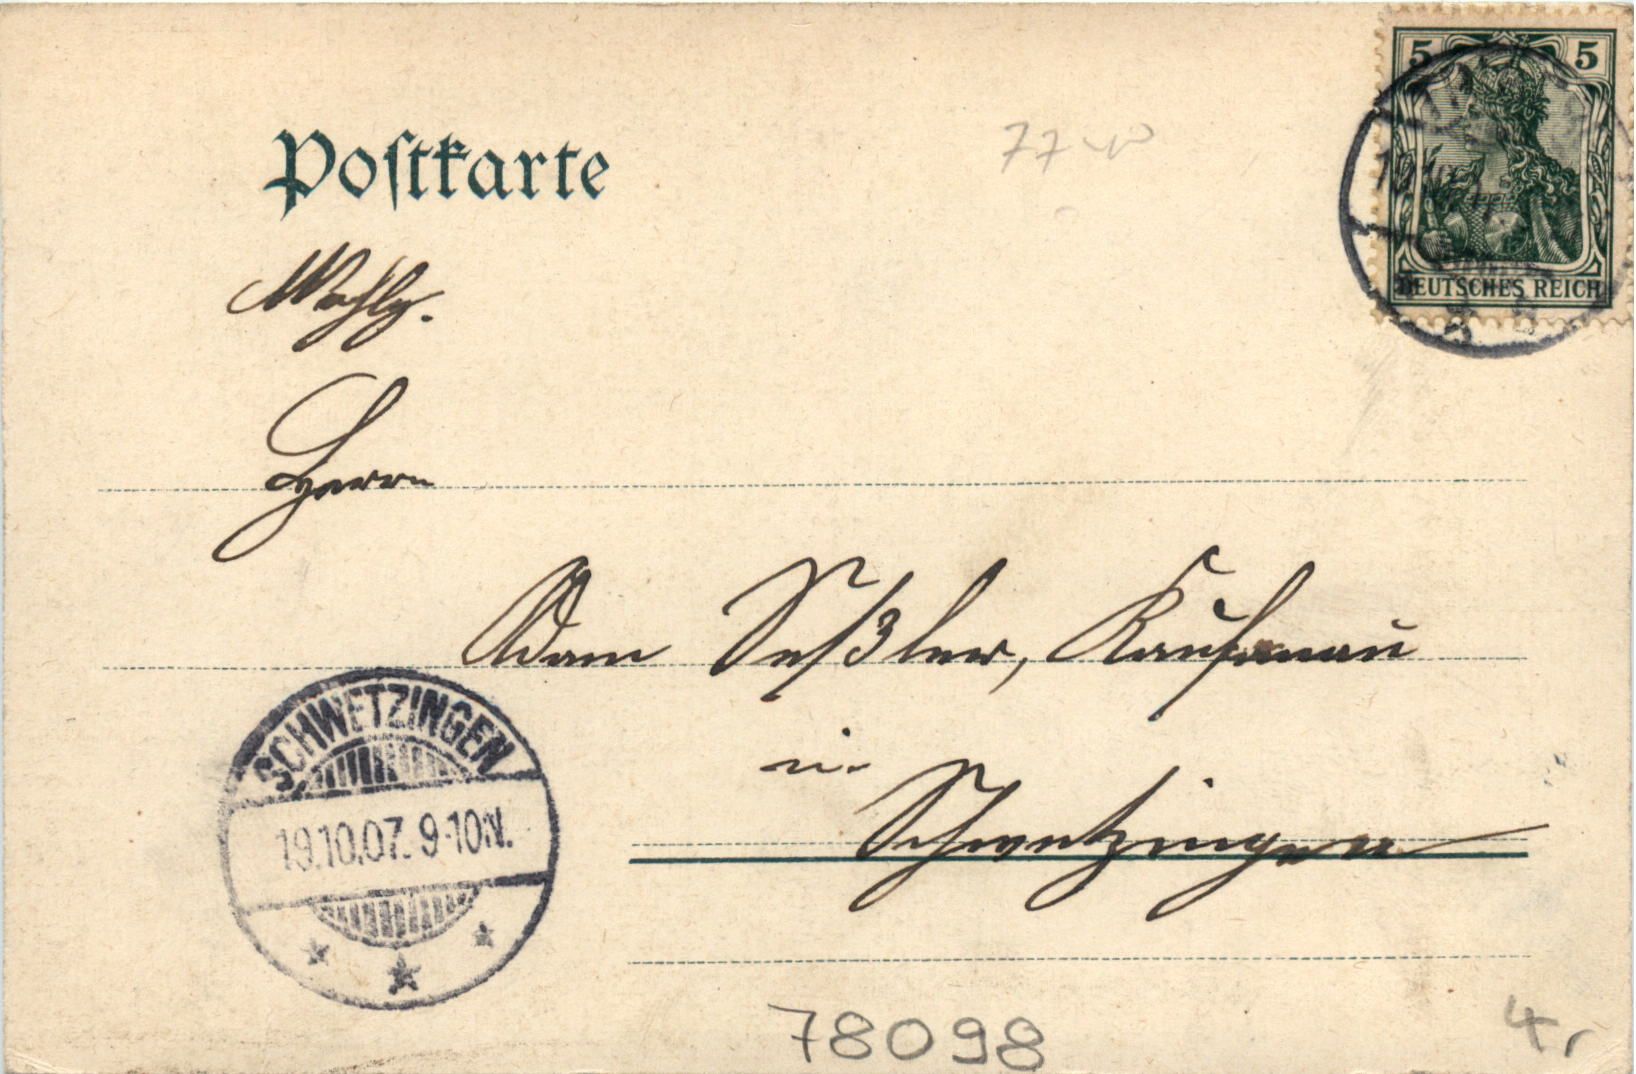 Postkarte
5 5
DEUTSCHES REICH
Wohlg.
Herrn
Adam Seßler, Kaufmann
in
Schwetzingen
SCHWETZINGEN
19.10.07. 9-10N.
78098